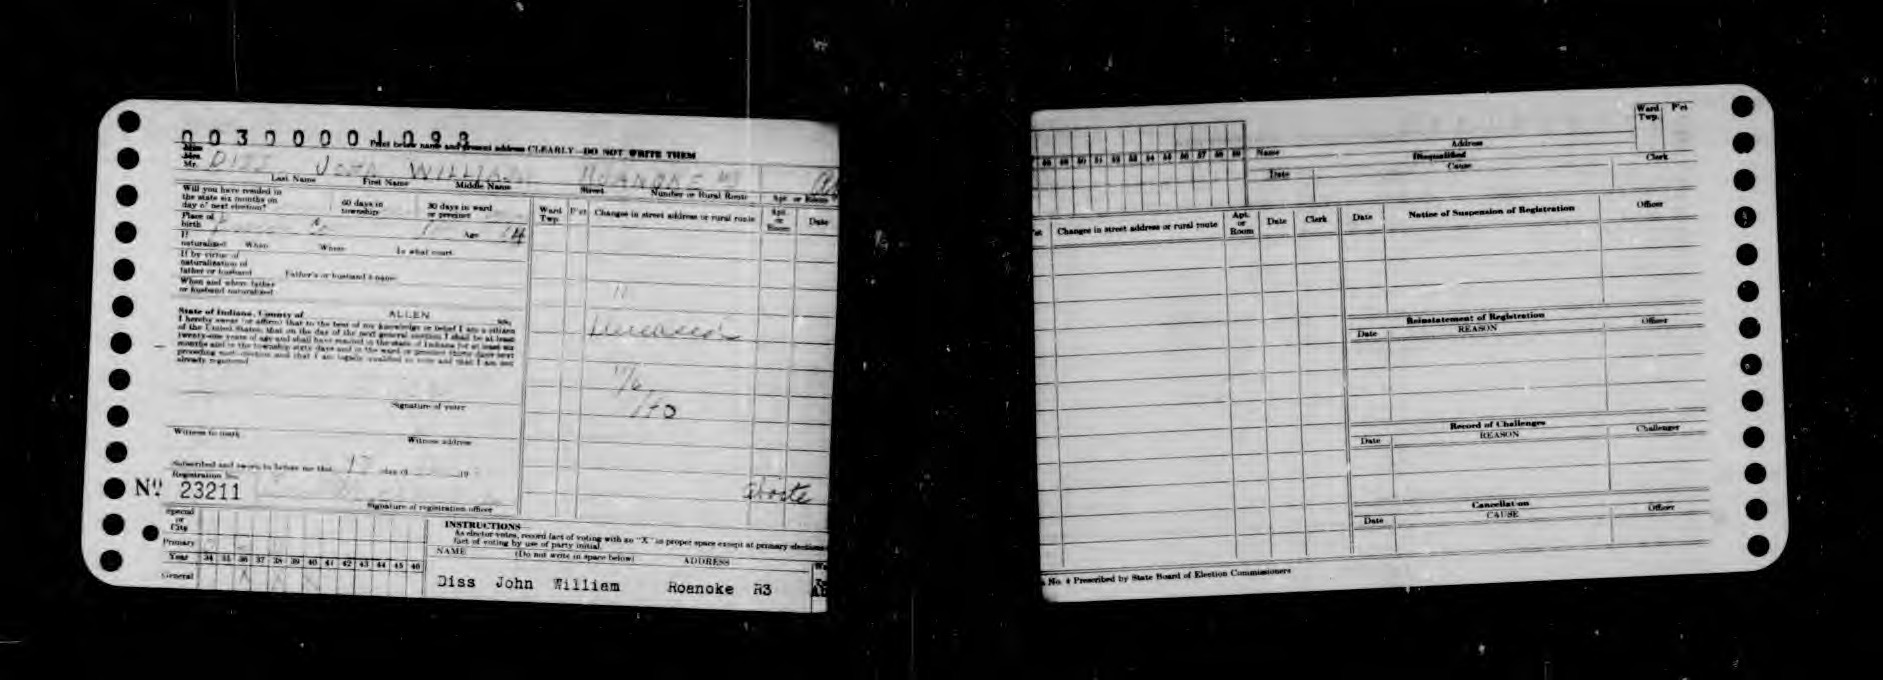 0 0 3 0 0 0 1 0 9 3
Print below name and present address CLEARLY—DO NOT WRITE THEM
Miss
Mrs.
Mr. DISS JOHN WILLIAM ROANOKE
Last Name First Name Middle Name Street Number or Rural Route Apt. or Room
Will you have resided in the state six months on day of next election? 60 days in township 30 days in ward or precinct
Place of birth Age
If naturalized When Where In what court
If by virtue of naturalization of father or husband Father's or husband's name
When and where father or husband naturalized
State of Indiana, County of ALLEN ss:
I hereby swear (or affirm) that to the best of my knowledge or belief I am a citizen
of the United States; that on the day of the next general election I shall be at least
twenty-one years of age and shall have resided in the state of Indiana for at least six
months and in the township sixty days and in the ward or precinct thirty days next
preceding such election and that I am legally qualified to vote and that I am not
already registered
Signature of voter
Witness to mark Witness address
Subscribed and sworn to before me this day of 19
Registration No.
No. 23211
Signature of registration officer
Ward Twp. P'ct Changes in street address or rural route Apt. or Room Date
Deceased
Special or City
Primary
Year 34 35 36 37 38 39 40 41 42 43 44 45 46
General
INSTRUCTIONS
As elector votes, record fact of voting with an "X" in proper space except at primary elections
fact of voting by use of party initial.
NAME (Do not write in space below) ADDRESS
Diss John William Roanoke R3
48 49 50 51 52 53 54 55 56 57 58 59
Name Address Ward Twp. P'ct
Disqualified
Date Cause Clerk
P'ct Changes in street address or rural route Apt. or Room Date Clerk
Date Notice of Suspension of Registration Officer
Reinstatement of Registration
Date REASON Officer
Record of Challenges
Date REASON Challenger
Cancellation
Date CAUSE Officer
No. 4 Prescribed by State Board of Election Commissioners